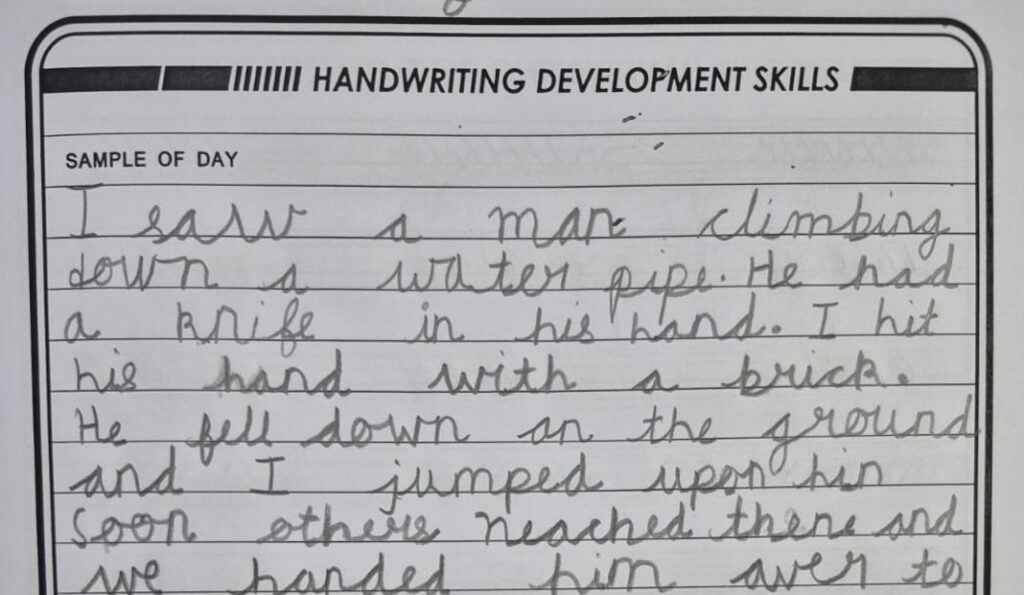 HANDWRITING DEVELOPMENT SKILLS
SAMPLE OF DAY
I saw a man climbing
down a water pipe. He had
a knife in his hand. I hit
his hand with a brick.
He fell down an the ground
and I jumped upon hin
Soon others reached there and
we handed him aver to